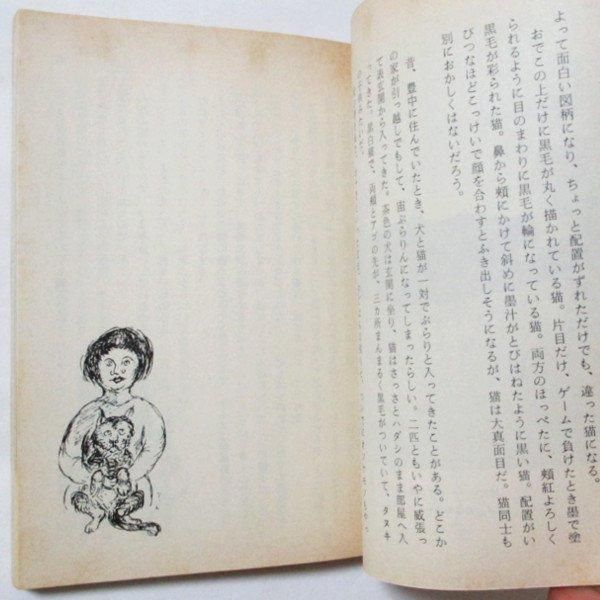 よって面白い図柄になり、ちょっと配置がずれただけでも、違った猫になる。
おでこの上だけに黒毛が丸く描かれている猫。片目だけ、ゲームで負けたとき墨で塗
られるように目のまわりに黒毛が輪になっている猫。両方のほっぺたに、頰紅よろしく
黒毛が彩られた猫。鼻から頰にかけて斜めに墨汁がとびはねたように黒い猫。配置がい
びつなほどこっけいで顔を合わすとふき出しそうになるが、猫は大真面目だ。猫同士も
別におかしくはないだろう。
昔、豊中に住んでいたとき、犬と猫が一対でぶらりと入ってきたことがある。どこか
の家が引っ越しでもして、宙ぶらりんになってしまったらしい。二匹ともいやに威張っ
て表玄関から入ってきた。茶色の犬は玄関に坐り、猫はさっさとハダシのまま部屋へ入
ってきた。黒白猫で、両頰とアゴの先が、三カ所まんまるく黒毛がついていて、タヌキ